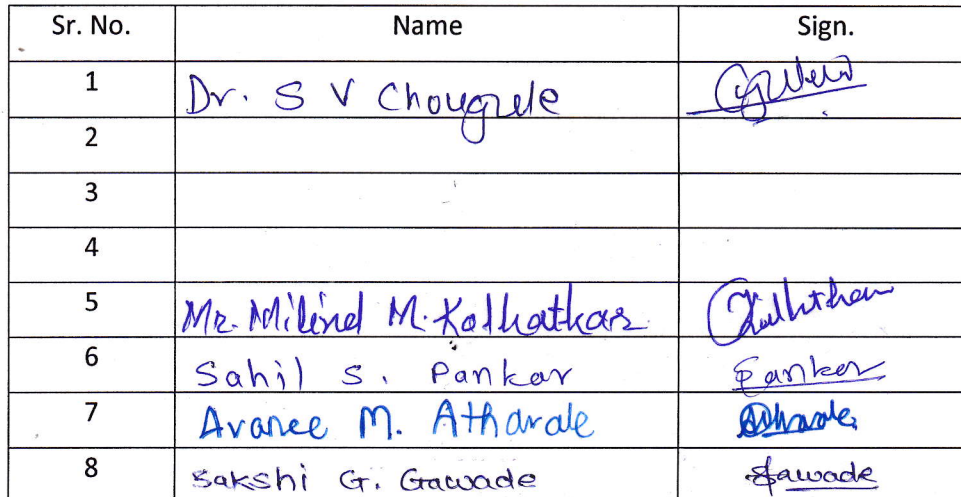 Sr. No. Name Sign.
1 Dr. S V Chougule
2
3
4
5 Mr. Milind M. Kolhatkar
6 Sahil S. Pankar Pankar
7 Avanee M. Athavale
8 Sakshi G. Gawade Gawade